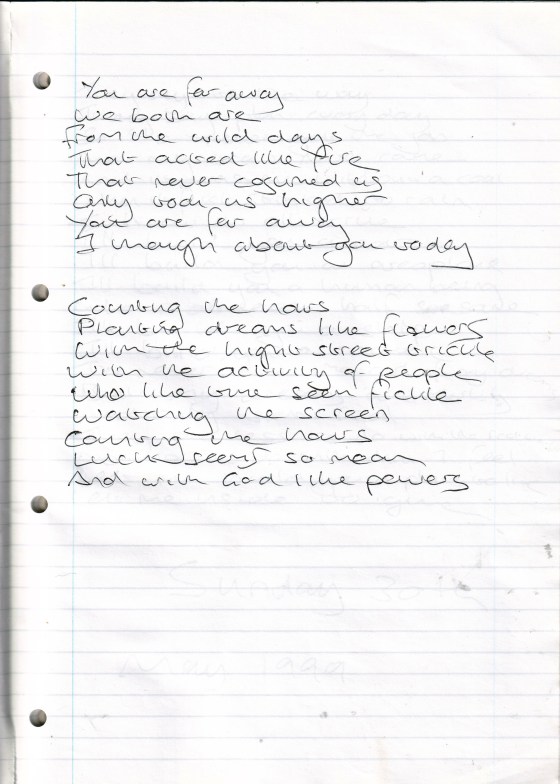 You are far away
We both are
from the wild days
That acted like fire
That never cosumed us
Only took us higher
You are far away
I though about you today
Counting the hours
Planting dreams like flowers
With the hight street trickle
With the activity of people
Who like time seem fickle
Watching the screen
Counting the hours
Luck seems so mean
And with God like powers
Sunday 30th
1999